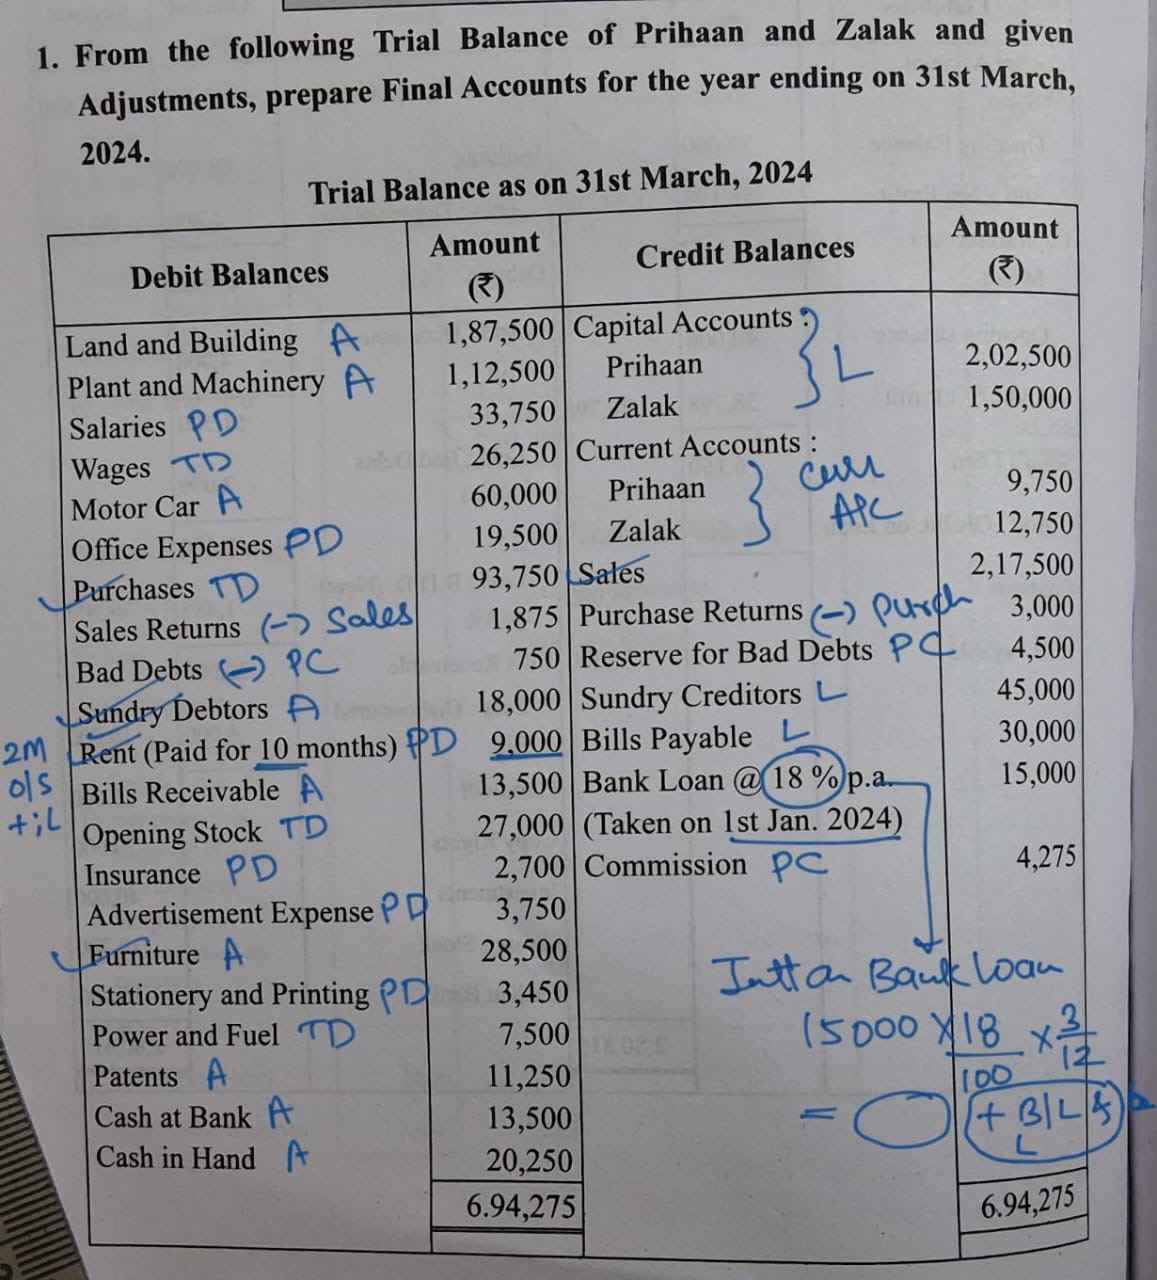 1. From the following Trial Balance of Prihaan and Zalak and given
Adjustments, prepare Final Accounts for the year ending on 31st March,
2024.
Trial Balance as on 31st March, 2024
Debit Balances Amount (₹) Credit Balances Amount (₹)
Land and Building A 1,87,500 Capital Accounts :
Plant and Machinery A 1,12,500 Prihaan L 2,02,500
Salaries PD 33,750 Zalak 1,50,000
Wages TD 26,250 Current Accounts :
Motor Car A 60,000 Prihaan Curr 9,750
Office Expenses PD 19,500 Zalak A/C 12,750
Purchases TD 93,750 Sales 2,17,500
Sales Returns (-) Sales 1,875 Purchase Returns (-) Purch 3,000
Bad Debts (-) PC 750 Reserve for Bad Debts PC 4,500
Sundry Debtors A 18,000 Sundry Creditors L 45,000
2M Rent (Paid for 10 months) PD 9,000 Bills Payable L 30,000
o/s Bills Receivable A 13,500 Bank Loan @ 18 % p.a. 15,000
+;L Opening Stock TD 27,000 (Taken on 1st Jan. 2024)
Insurance PD 2,700 Commission PC 4,275
Advertisement Expense PD 3,750
Furniture A 28,500 Intt on Bank loan
Stationery and Printing PD 3,450 15000 X 18 x 3
Power and Fuel TD 7,500 100 12
Patents A 11,250
Cash at Bank A 13,500 = + B/L &
Cash in Hand A 20,250 L
6.94,275 6.94,275